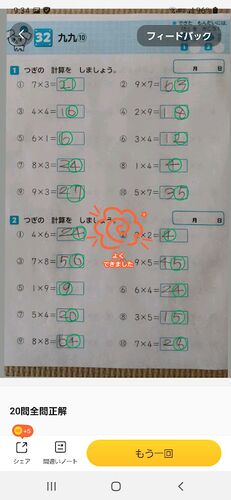 9:34
96%
できた もんだいには、
32 九九⑩
フィードバック
1 つぎの 計算を しましょう。
月 日
① 7×3= 21 ② 9×7= 63
③ 4×4= 16 ④ 2×9= 18
⑤ 6×1= 6 ⑥ 3×4= 12
⑦ 8×3= 24 ⑧ 1×4= 4
⑨ 9×3= 27 ⑩ 5×7= 35
2 つぎの 計算を しましょう。
月 日
① 4×6= 24 ×2= 4
よく
できました
③ 7×8= 56 9×5= 45
⑤ 1×9= 9 ⑥ 6×4= 24
⑦ 5×4= 20 ⑧ 3×5= 15
⑨ 8×8= 64 ⑩ 7×4= 28
20問全問正解
+5
シェア
間違いノート
もう一回